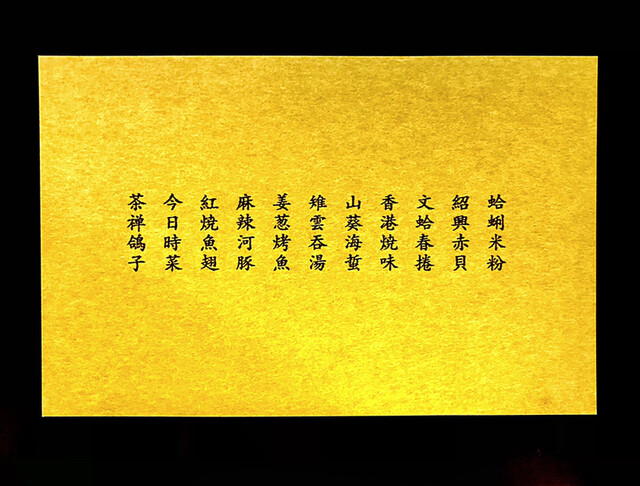 蛤蜊米粉
紹興赤貝
文蛤春捲
香港燒味
山葵海蜇
雉雲吞湯
姜葱烤魚
麻辣河豚
紅燒魚翅
今日時菜
茶禅鴿子